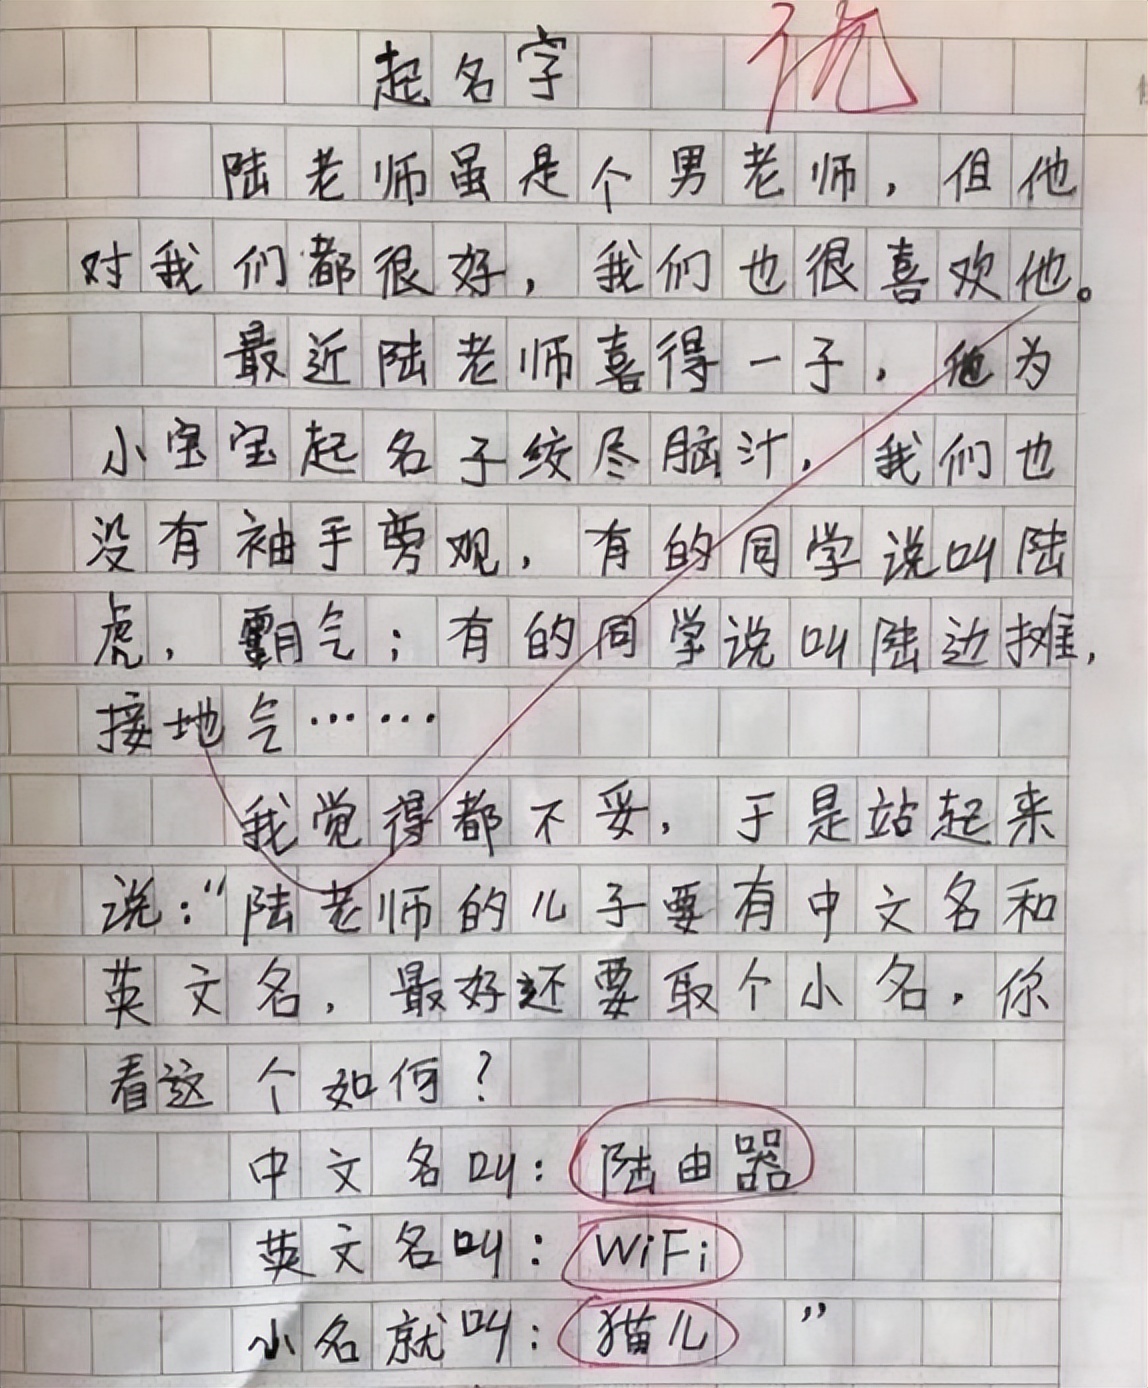 起名字
陆老师虽是个男老师，但他
对我们都很好，我们也很喜欢他。
最近陆老师喜得一子，他为
小宝宝起名子绞尽脑汁，我们也
没有袖手旁观，有的同学说叫陆
虎，霸气；有的同学说叫陆边摊，
接地气……
我觉得都不妥，于是站起来
说：“陆老师的儿子要有中文名和
英文名，最好还要取个小名，你
看这个如何？
中文名叫：陆由器
英文名叫：WiFi
小名就叫：猫儿”